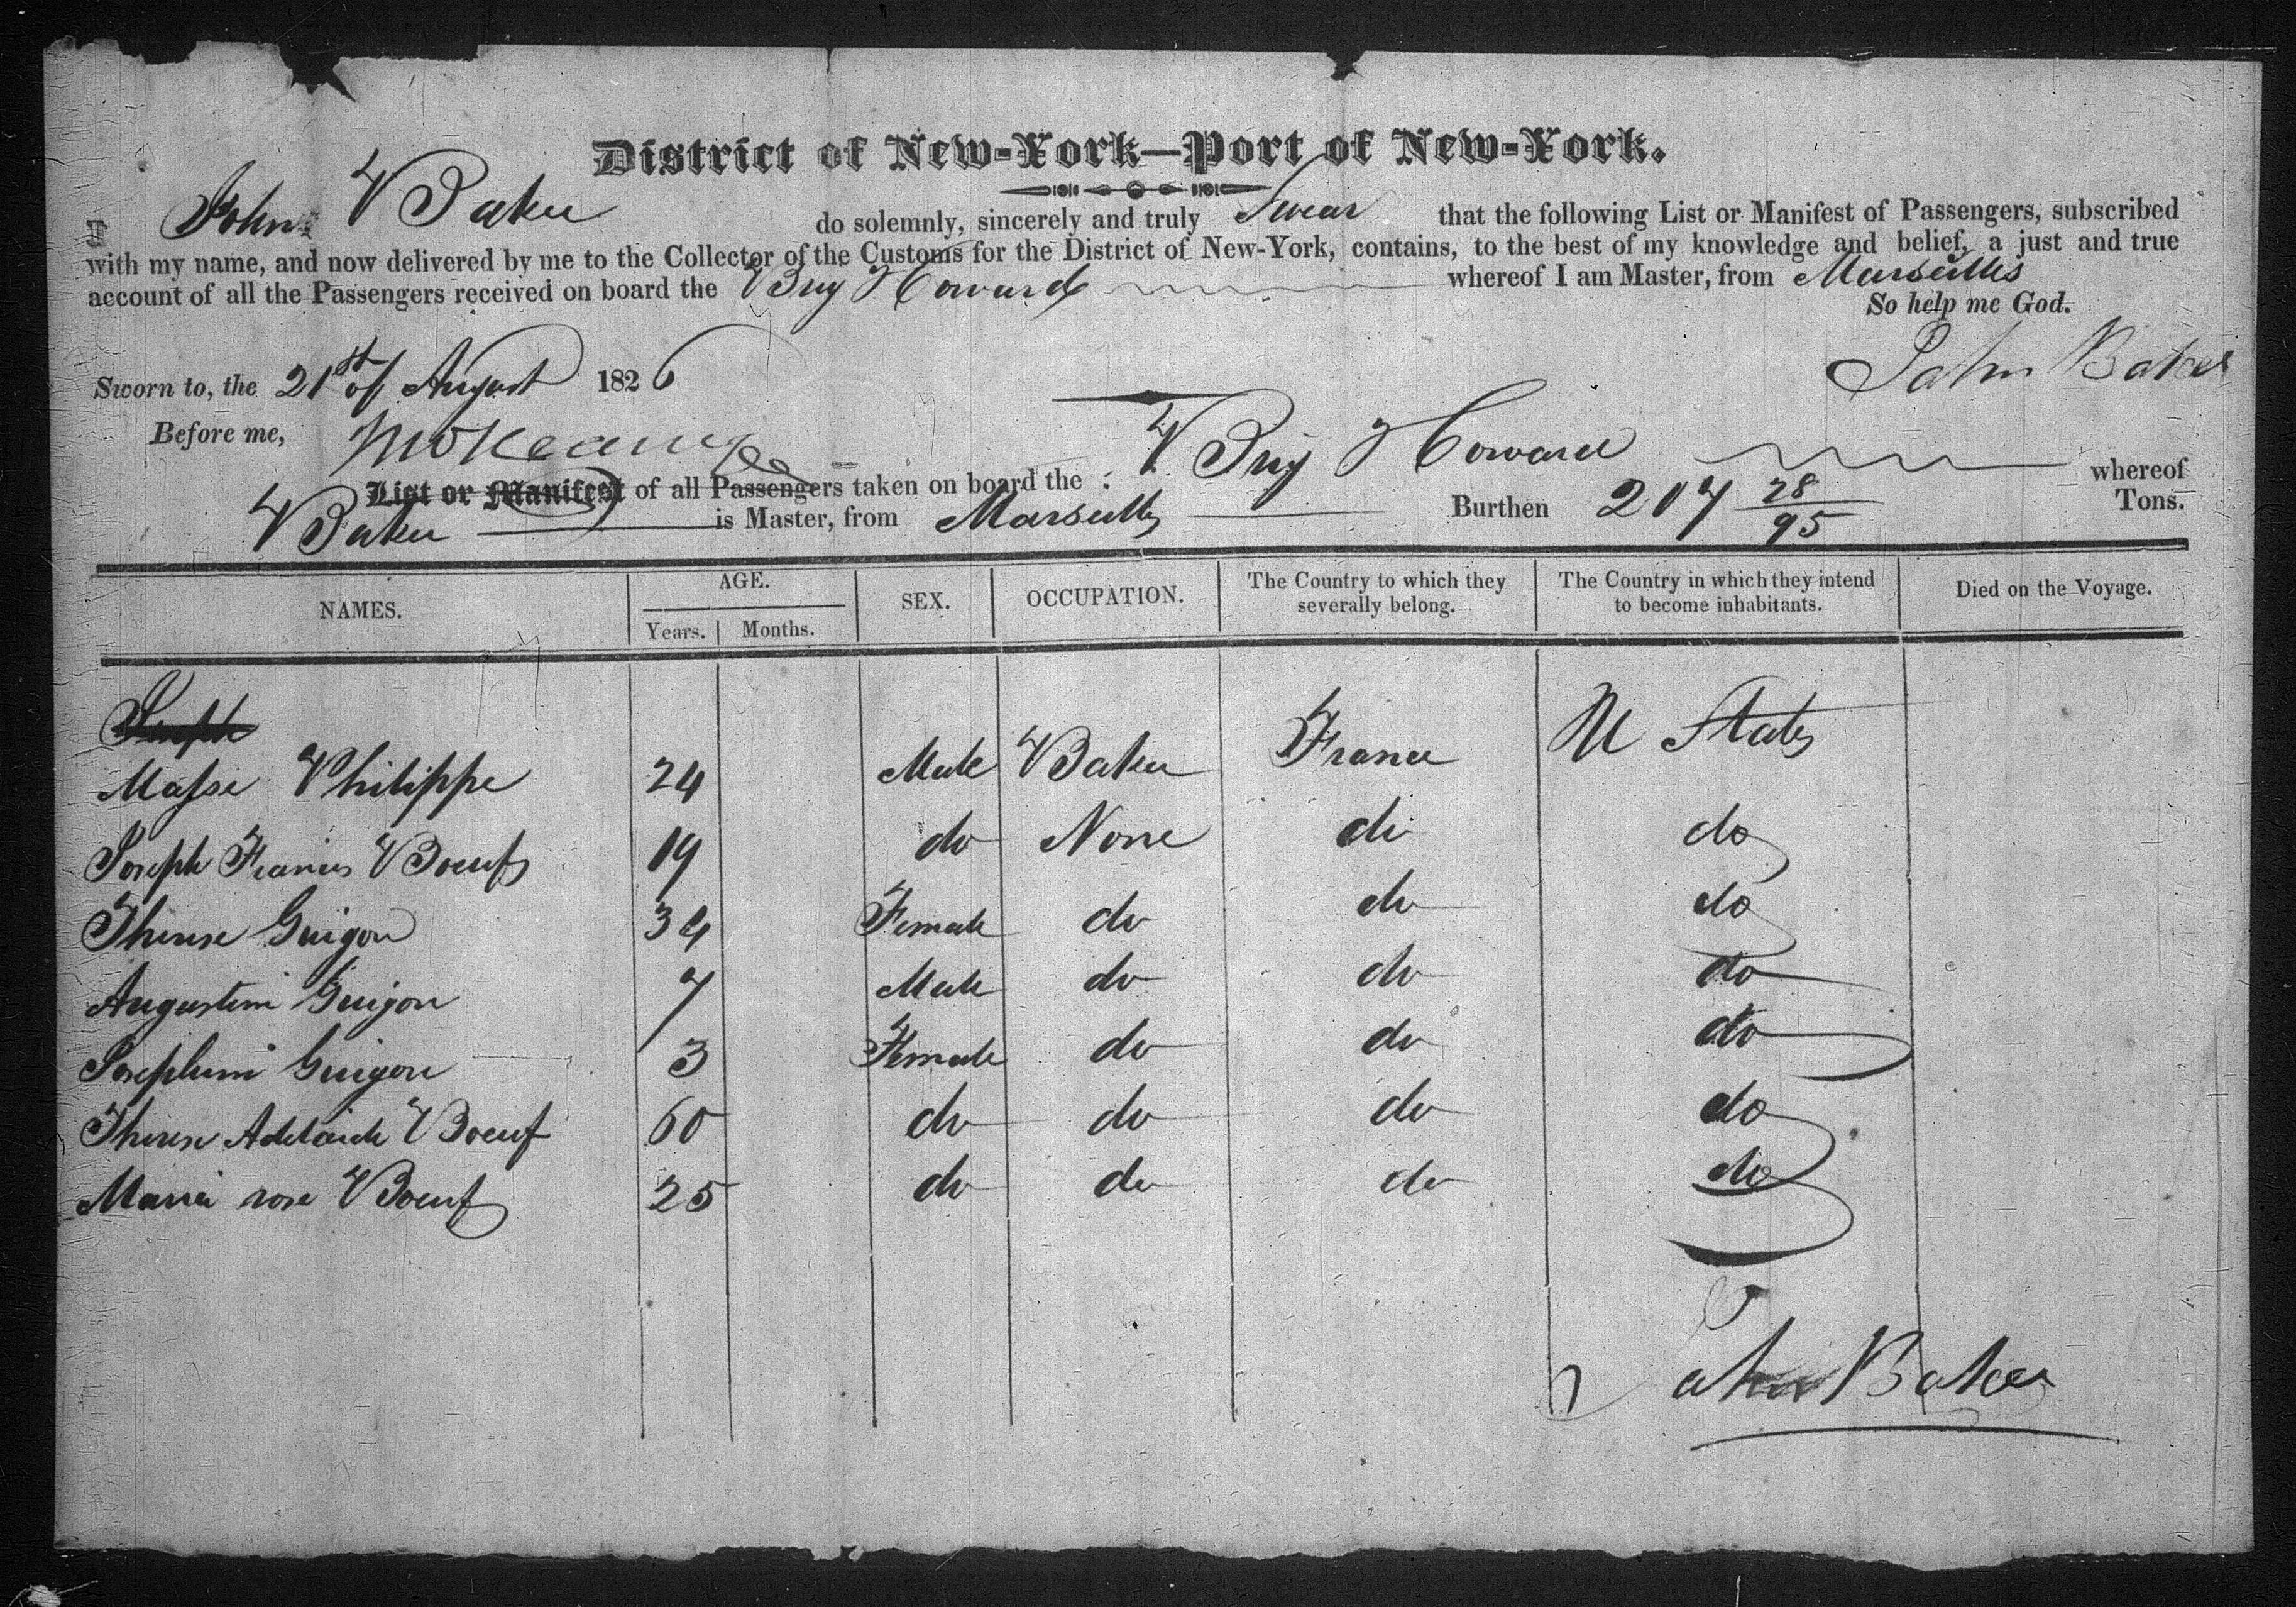 District of New-York—Port of New-York.
I John Baker do solemnly, sincerely and truly Swear that the following List or Manifest of Passengers, subscribed
with my name, and now delivered by me to the Collector of the Customs for the District of New-York, contains, to the best of my knowledge and belief, a just and true
account of all the Passengers received on board the Brig Howard whereof I am Master, from Marseilles
So help me God.
Sworn to, the 21st of August 1826 John Baker
Before me,
List or Manifest of all Passengers taken on board the Brig Howard whereof
Baker is Master, from Marseilles Burthen 207 28/95 Tons.
NAMES. AGE. Years. Months. SEX. OCCUPATION. The Country to which they severally belong. The Country in which they intend to become inhabitants. Died on the Voyage.
Joseph
Masse Philippe 24 Male Baker France U States
Joseph Francis Boeuf 19 do None do do
Therese Guigon 34 Female do do do
Augustin Guigon 7 Male do do do
Josephine Guigon 3 Female do do do
Therese Adelaide Boeuf 60 do do do do
Maria rose Boeuf 25 do do do do
John Baker